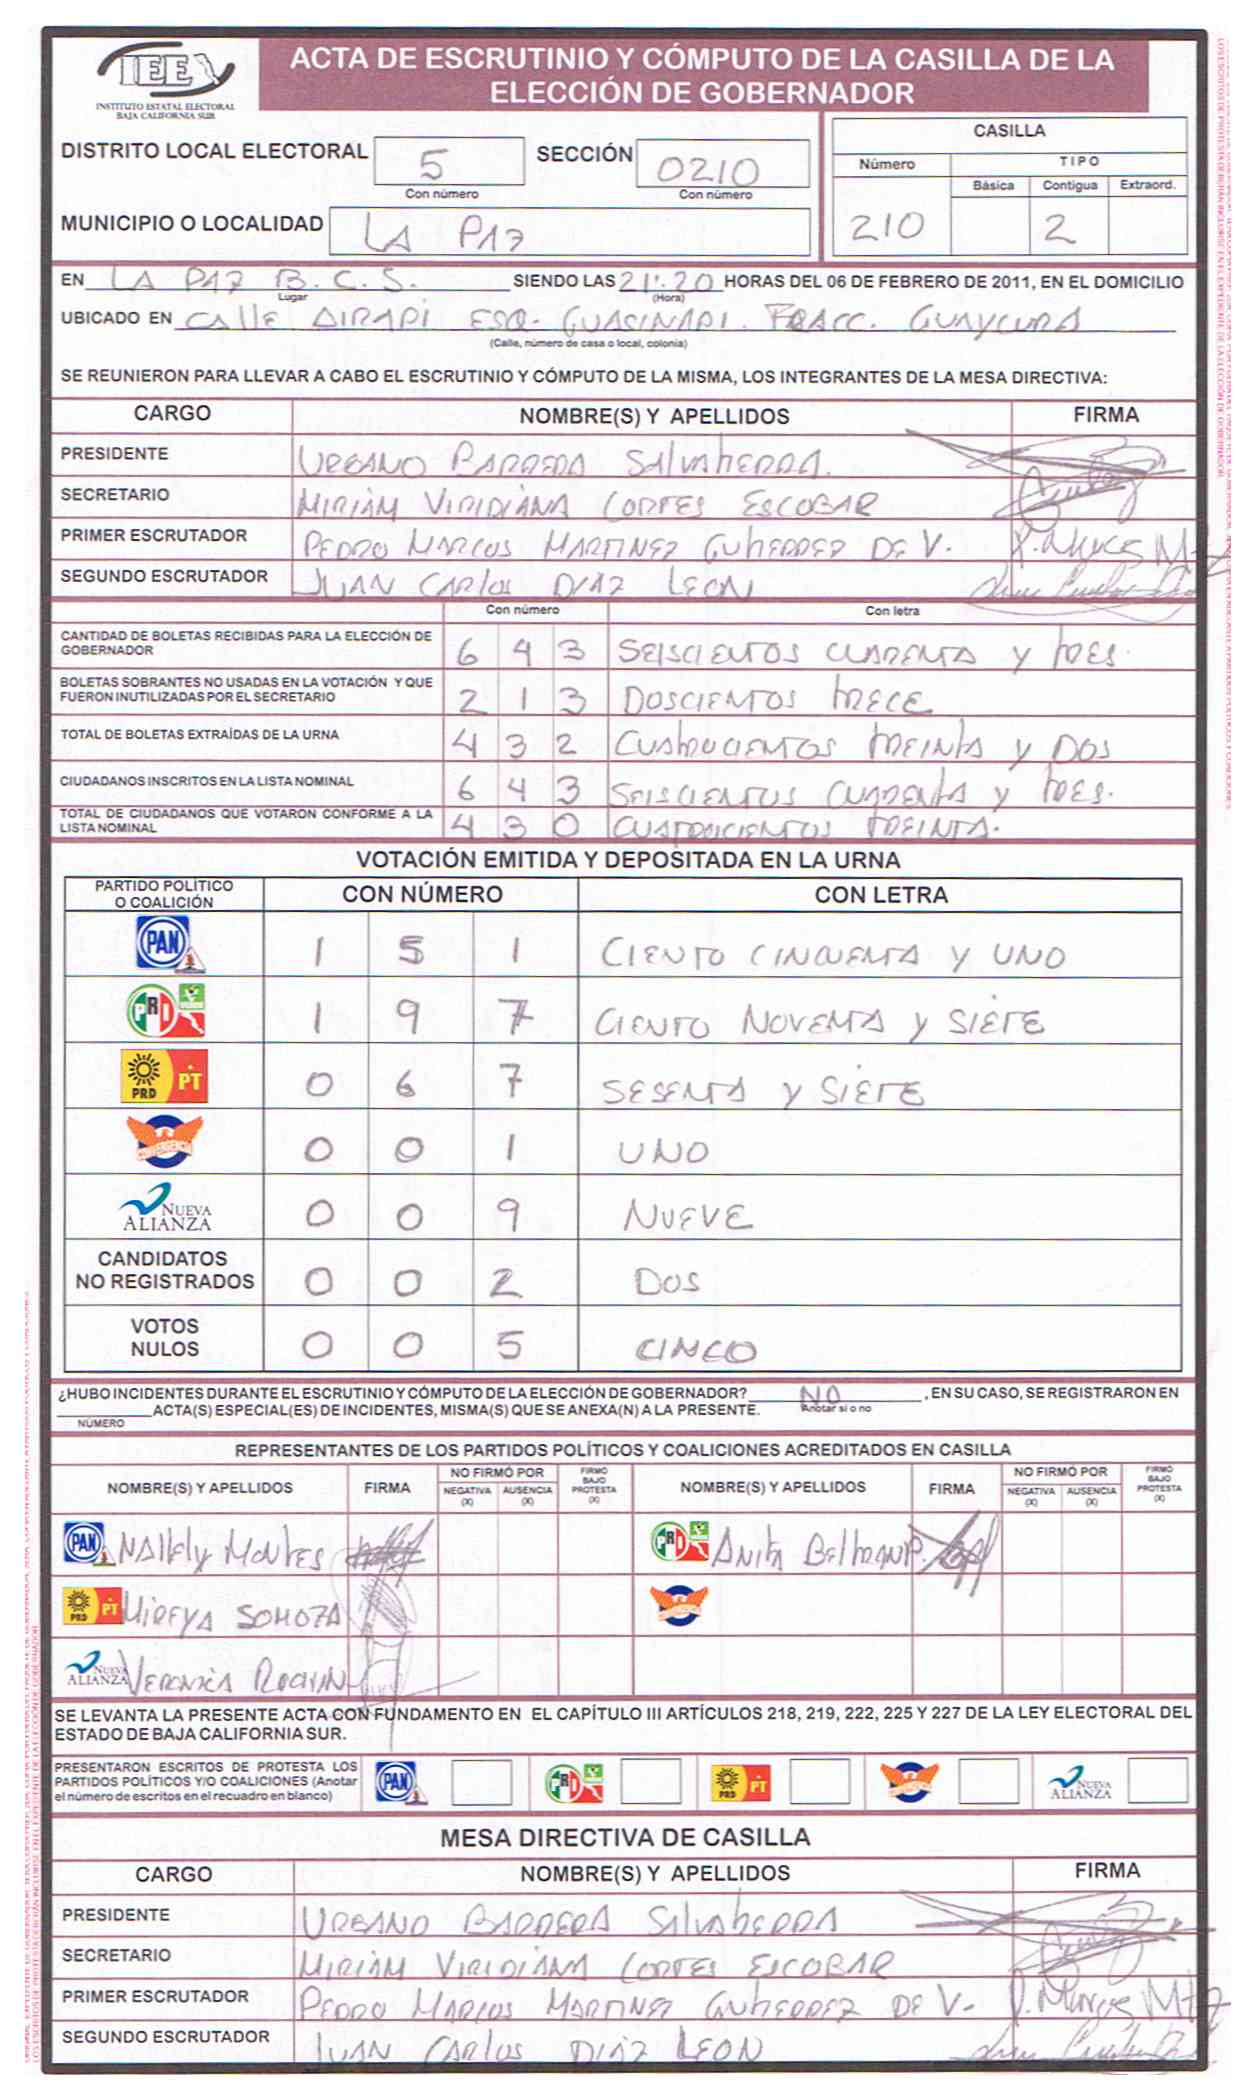 IEE
INSTITUTO ESTATAL ELECTORAL
BAJA CALIFORNIA SUR
ACTA DE ESCRUTINIO Y CÓMPUTO DE LA CASILLA DE LA
ELECCIÓN DE GOBERNADOR
DISTRITO LOCAL ELECTORAL 5 SECCIÓN 0210
Con número Con número
MUNICIPIO O LOCALIDAD LA PAZ
CASILLA
Número TIPO
Básica Contigua Extraord.
210 2
EN LA PAZ B.C.S. SIENDO LAS 21:20 HORAS DEL 06 DE FEBRERO DE 2011, EN EL DOMICILIO
Lugar (Hora)
UBICADO EN CAllE AIRAPI ESQ. GUASINAPI. FRACC. GUAYCURA
(Calle, número de casa o local, colonia)
SE REUNIERON PARA LLEVAR A CABO EL ESCRUTINIO Y CÓMPUTO DE LA MISMA, LOS INTEGRANTES DE LA MESA DIRECTIVA:
CARGO NOMBRE(S) Y APELLIDOS FIRMA
PRESIDENTE URBANO BARRERA SAlVAtIERRA.
SECRETARIO MIRIAM VIRIDIANA CORTES ESCOBAR
PRIMER ESCRUTADOR PEDRO MARCOS MARTINEZ GUtIERREZ DE V. P. Marcos Mtz
SEGUNDO ESCRUTADOR JUAN CARlos DIAZ LEON
Con número Con letra
CANTIDAD DE BOLETAS RECIBIDAS PARA LA ELECCIÓN DE
GOBERNADOR 6 4 3 SEISCIENTOS CUARENTA Y tRES.
BOLETAS SOBRANTES NO USADAS EN LA VOTACIÓN Y QUE
FUERON INUTILIZADAS POR EL SECRETARIO 2 1 3 DOSCIENTOS tRECE
TOTAL DE BOLETAS EXTRAÍDAS DE LA URNA 4 3 2 CUAtROCIENTOS tREINtA Y DOS
CIUDADANOS INSCRITOS EN LA LISTA NOMINAL 6 4 3 SEISCIENTOS CUARENtA Y tRES.
TOTAL DE CIUDADANOS QUE VOTARON CONFORME A LA
LISTA NOMINAL 4 3 0 CUATROCIENTOS tREINTA.
VOTACIÓN EMITIDA Y DEPOSITADA EN LA URNA
PARTIDO POLÍTICO
O COALICIÓN CON NÚMERO CON LETRA
PAN 1 5 1 CIENTO CINCUENTA Y UNO
PRI VERDE 1 9 7 CIENTO NOVENTA Y SIETE
PRD PT 0 6 7 SESENTA Y SIETE
CONVERGENCIA 0 0 1 UNO
NUEVA ALIANZA 0 0 9 NUEVE
CANDIDATOS
NO REGISTRADOS 0 0 2 DOS
VOTOS
NULOS 0 0 5 CINCO
¿HUBO INCIDENTES DURANTE EL ESCRUTINIO Y CÓMPUTO DE LA ELECCIÓN DE GOBERNADOR? NO , EN SU CASO, SE REGISTRARON EN
ACTA(S) ESPECIAL(ES) DE INCIDENTES, MISMA(S) QUE SE ANEXA(N) A LA PRESENTE. Anotar si o no
NÚMERO
REPRESENTANTES DE LOS PARTIDOS POLÍTICOS Y COALICIONES ACREDITADOS EN CASILLA
NOMBRE(S) Y APELLIDOS FIRMA NO FIRMÓ POR NEGATIVA (X) AUSENCIA (X) FIRMÓ BAJO PROTESTA (X) NOMBRE(S) Y APELLIDOS FIRMA NO FIRMÓ POR NEGATIVA (X) AUSENCIA (X) FIRMÓ BAJO PROTESTA (X)
PAN Nallely Montes PRI VERDE Anita Beltran P.
PRD PT MIREYA SOMOZA CONVERGENCIA
NUEVA ALIANZA VERONICA ROCHIN
SE LEVANTA LA PRESENTE ACTA CON FUNDAMENTO EN EL CAPÍTULO III ARTÍCULOS 218, 219, 222, 225 Y 227 DE LA LEY ELECTORAL DEL
ESTADO DE BAJA CALIFORNIA SUR.
PRESENTARON ESCRITOS DE PROTESTA LOS
PARTIDOS POLÍTICOS Y/O COALICIONES (Anotar
el número de escritos en el recuadro en blanco) PAN PRI VERDE PRD PT CONVERGENCIA NUEVA ALIANZA
MESA DIRECTIVA DE CASILLA
CARGO NOMBRE(S) Y APELLIDOS FIRMA
PRESIDENTE URBANO BARRERA SAlVAtIERRA
SECRETARIO MIRIAM VIRIDIANA CORTES ESCOBAR
PRIMER ESCRUTADOR PEDRO MARCOS MARTINEZ GUtIERREZ DE V. P. Marcos Mtz
SEGUNDO ESCRUTADOR JUAN CARlos DIAZ LEON